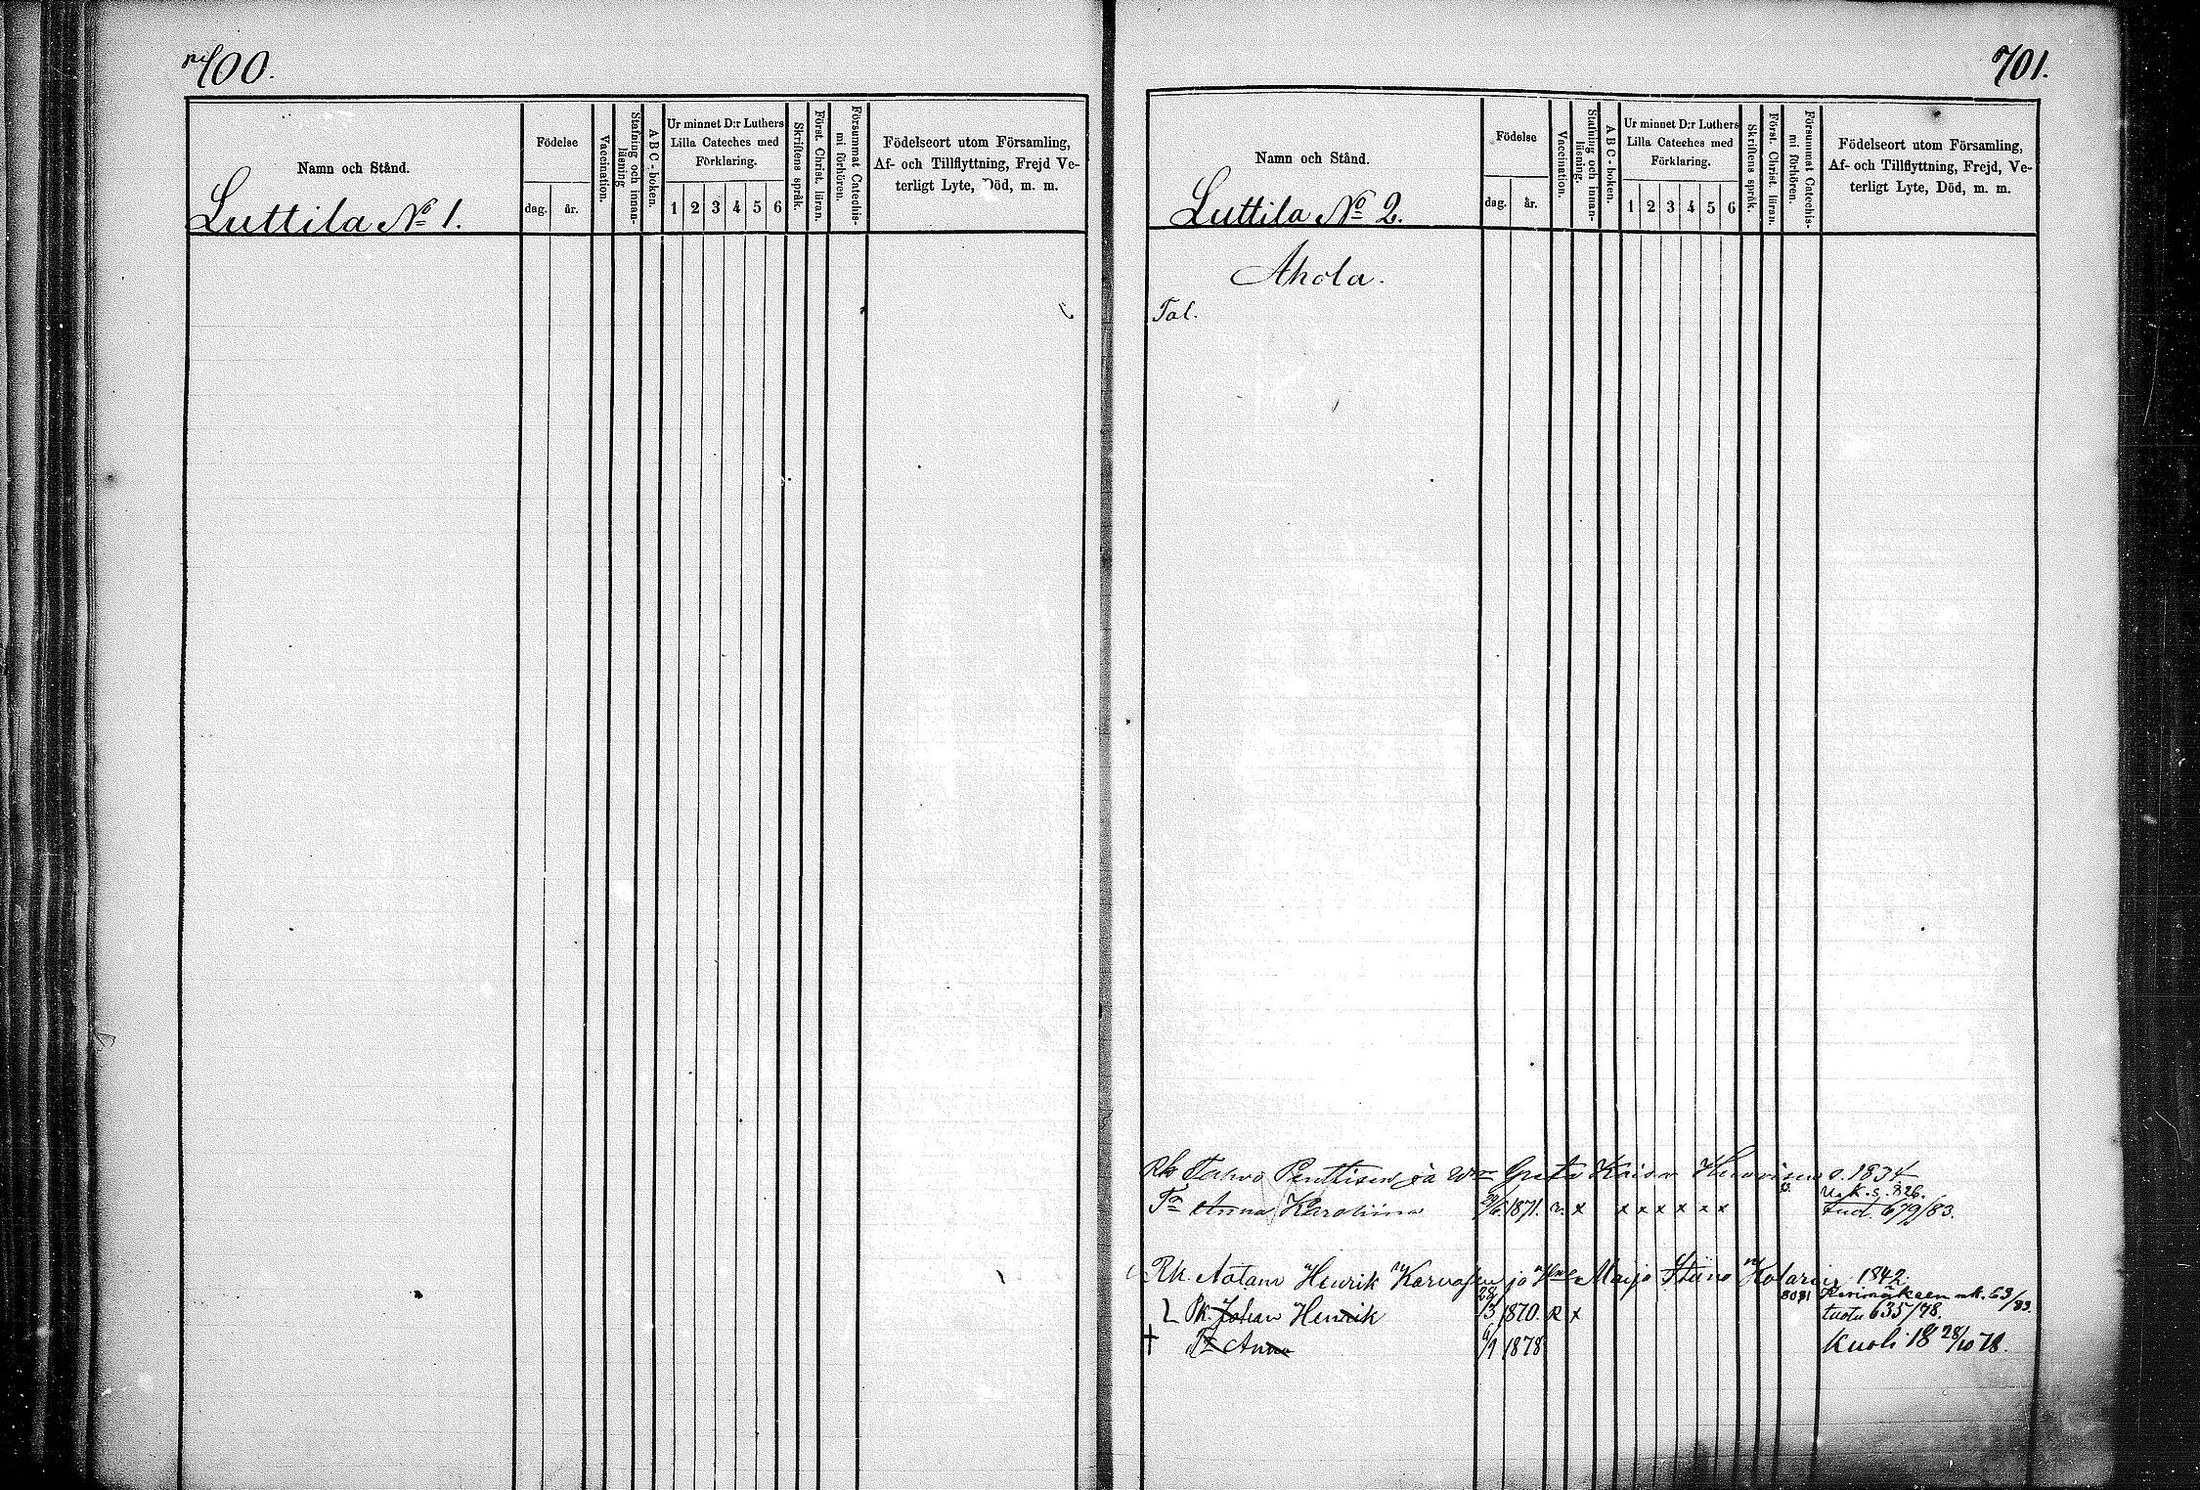 700.
Namn och Stånd.
Luttila No 1.
Födelse
dag. år.
Vaccination.
Stafning och innan-
läsning
ABC-boken.
Ur minnet D:r Luthers
Lilla Cateches med
Förklaring.
1 2 3 4 5 6
Skriftens språk.
Först. Christ. läran.
Försummat Catechis-
mi förhören.
Födelseort utom Församling,
Af- och Tillflyttning, Frejd Ve-
terligt Lyte, Död, m. m.
701.
Namn och Stånd.
Luttila No 2.
Födelse
dag. år.
Vaccination.
Stafning och innan-
läsning.
ABC-boken.
Ur minnet D:r Luthers
Lilla Cateches med
Förklaring.
1 2 3 4 5 6
Skriftens språk.
Först. Christ. läran.
Försummat Catechis-
mi förhören.
Födelseort utom Församling,
Af- och Tillflyttning, Frejd, Ve-
terligt Lyte, Död, m. m.
Ahola.
Tal.
Rk Penttisen ja Greta Kaisa s. 1834
Anna Karoliina 1871. v. x x x x x x x 679/83.
Rk. Aatam Henrik ja Maija Stiina 1842
Pk. Johan Henrik 28/3 1870. R x 8081 63/83.
tuotu 635/78.
† Anna 6/9 1878 Kuoli 18 28/10 78.